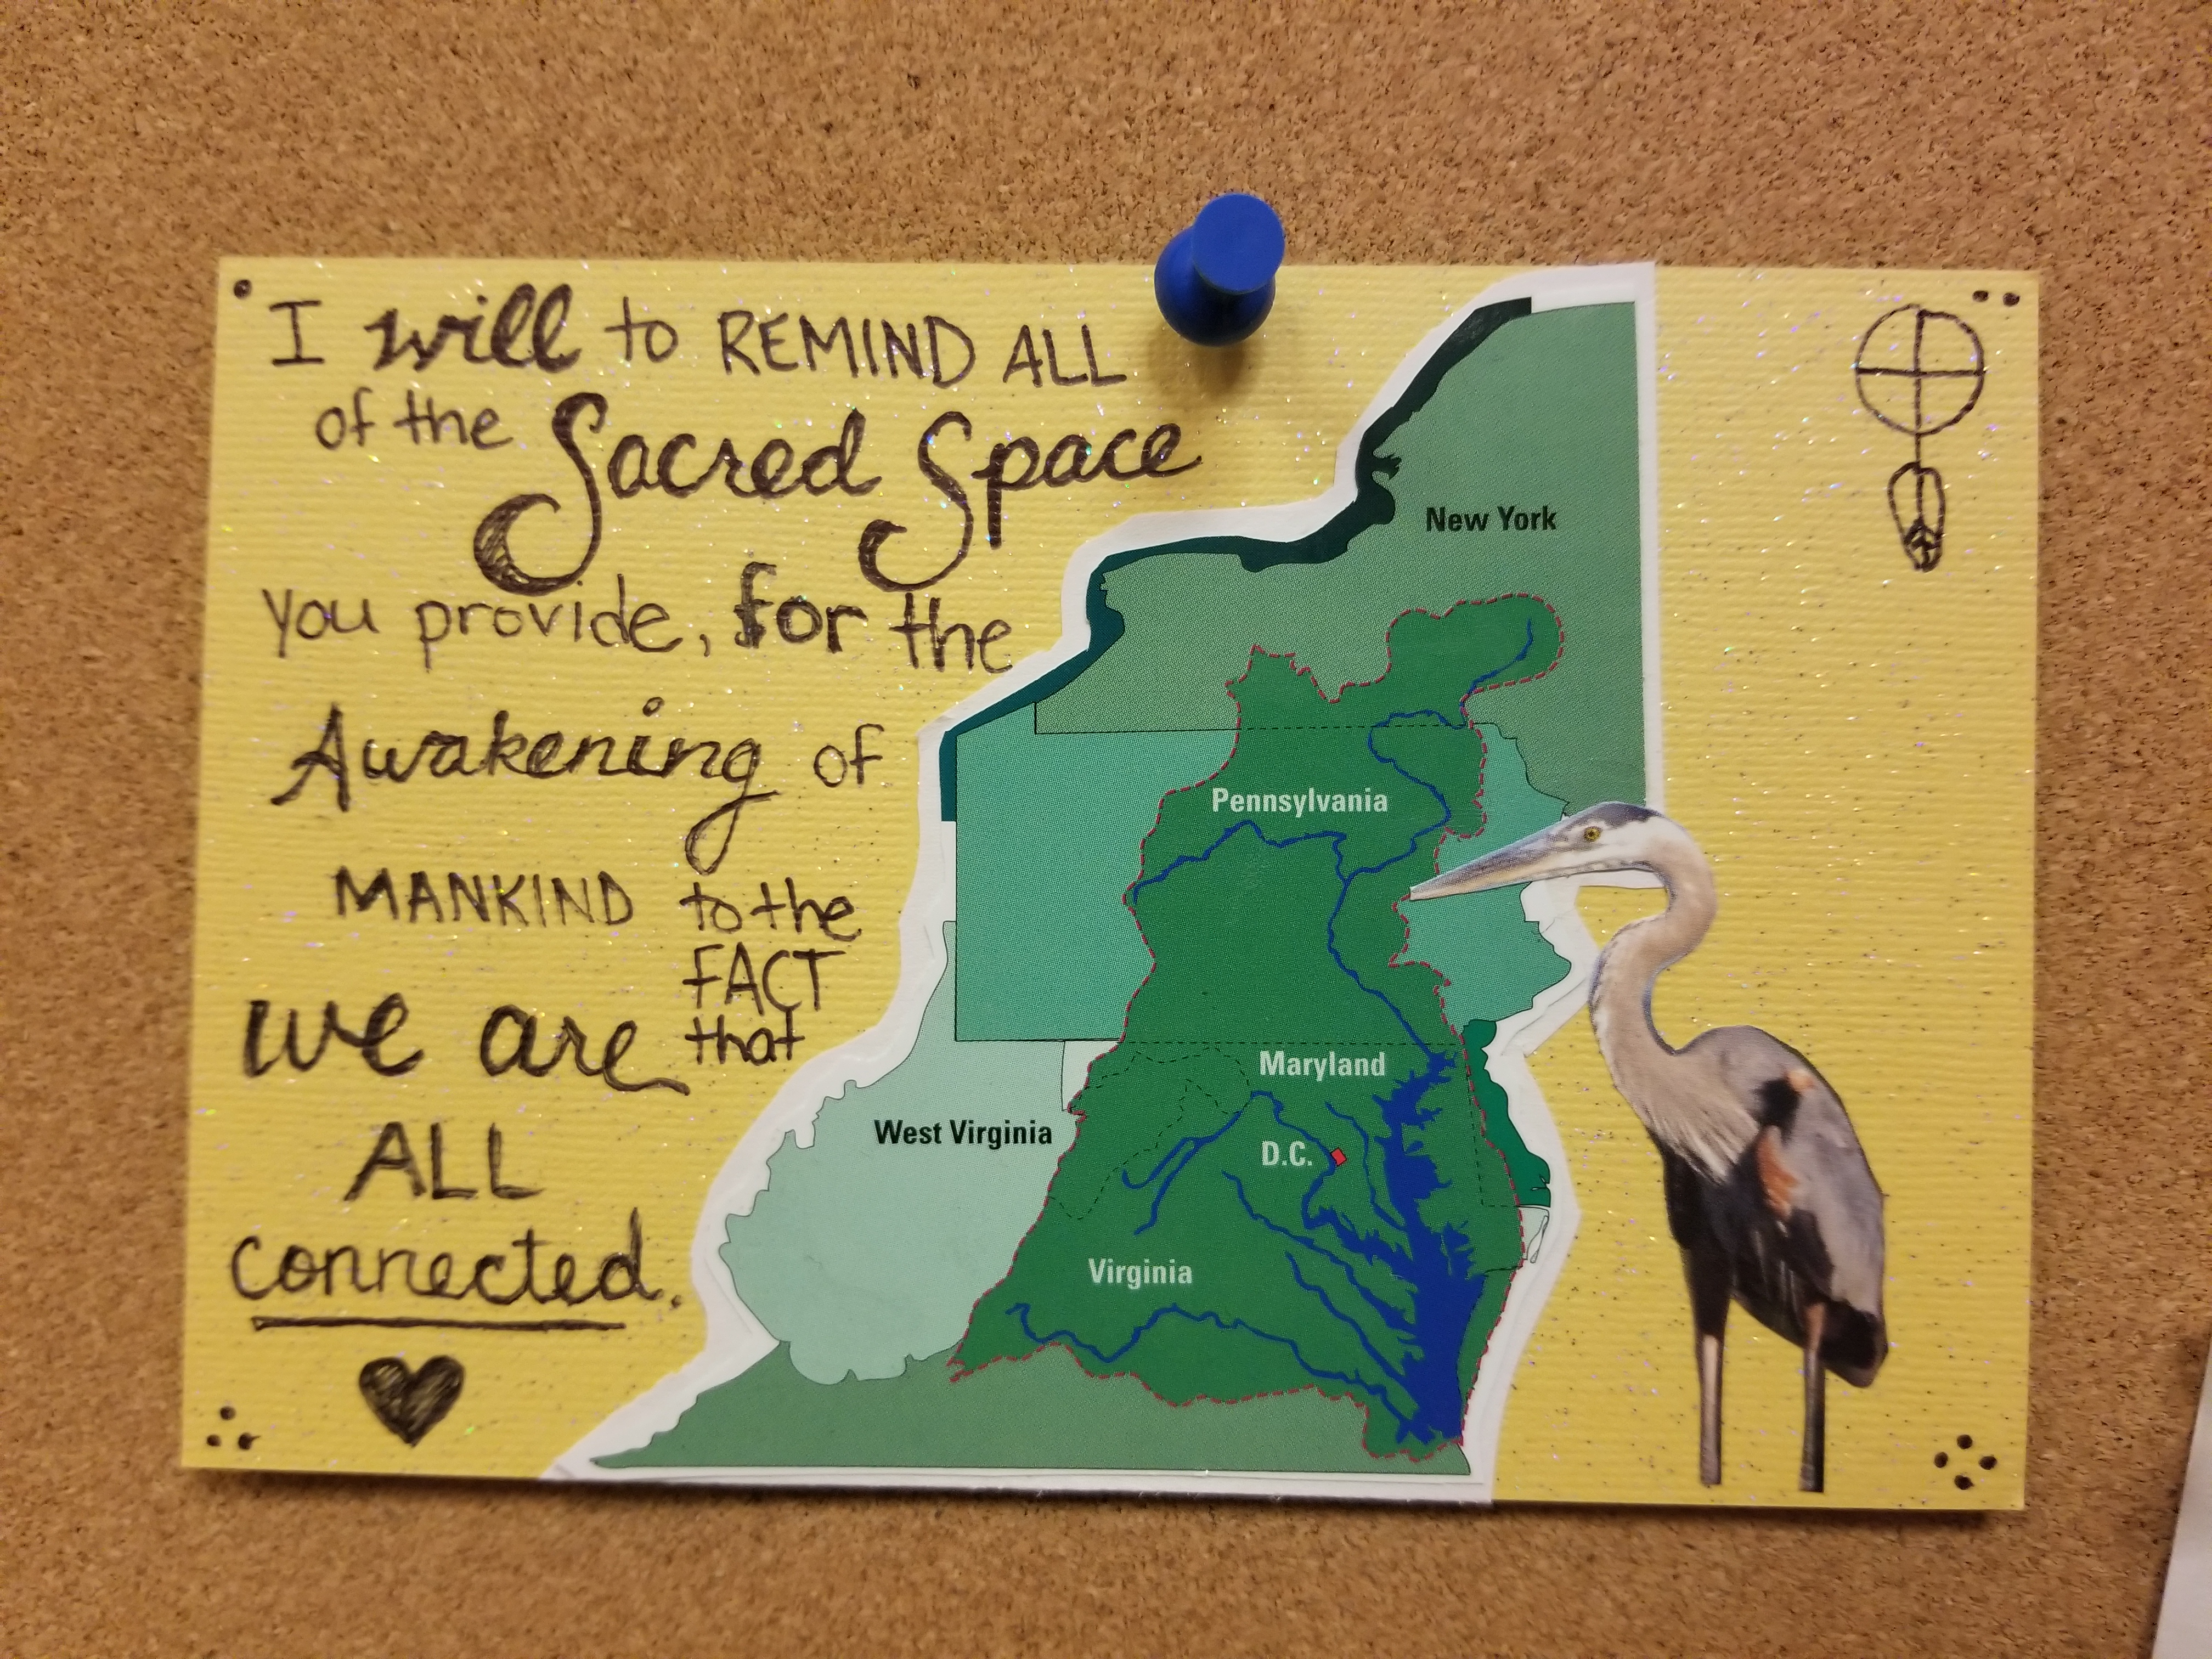 I will to REMIND ALL
of the Sacred Space
you provide, for the
Awakening of
MANKIND to the
FACT
that
we are
ALL
connected.
New York
Pennsylvania
Maryland
West Virginia
D.C.
Virginia